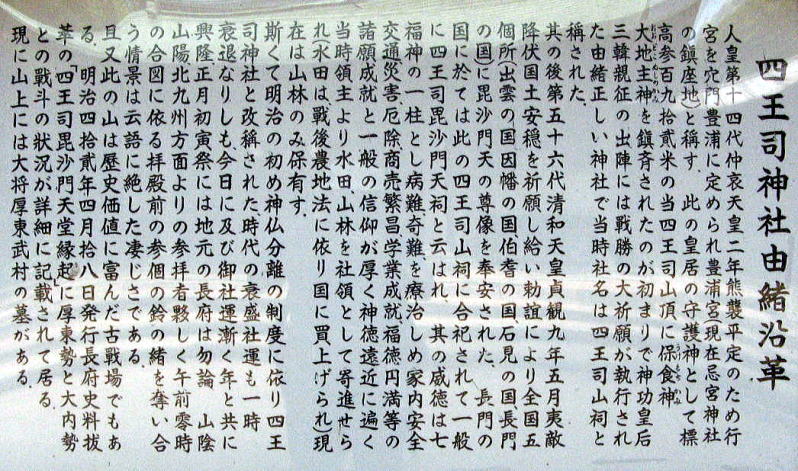 四王司神社由緒沿革
人皇第十四代仲哀天皇二年熊襲平定のため行
宮を穴門豊浦に定められ豊浦宮現在忌宮神社
の鎮座地と称す　此の皇居の守護神として標
高参百九拾弐米の当四王司山頂に保食神
大地主神を鎮斉されたのが初まりで神功皇后
三韓親征の出陣には戦勝の大祈願が執行され
た由緒正しい神社で当時社名は四王司山祠と
称された。
其の後第五十六代清和天皇貞観九年五月夷敵
降伏国土安穏を祈願し給い勅諠により全国五
個所(出雲の国因幡の国伯耆の国石見の国長門
の国)に毘沙門天の尊像を奉安された。長門の
国に於ては此の四王司山祠に合祀されて一般
に四王司毘沙門天祠と云はれ、其の威徳は七
福神の一柱とし病難奇難を療治しめ家内安全
交通災害、厄除、商売繁昌学業成就福徳円満等の
諸願成就と一般の信仰が厚く神徳遠近に遍く
当時領主より水田山林を社領として寄進せら
れ水田は、戦後農地法に依り国に買上げられ現
在は山林のみ保有す。
斯くて明治の初め神仏分離の制度に依り四王
司神社と改称された、時代の衰盛社運も一時
衰退なりしも今日に及び御社運漸く年と共に
興隆正月初寅祭には地元の長府は勿論　山陰
山陽北九州方面よりの参拝者夥しく午前零時
の合図に依る拝殿前の参個の鈴の緒を奪い合
う情景は云語に絶した凄じさである。
且又此の山は歴史価値に富んだ古戦場でもあ
る。明治四拾弐年四月拾八日発行長府史料抜
萃の「四王司毘沙門天堂縁起」に厚東勢と大内勢
との戦斗の状況が詳細に記載されて居る
現に山上には大将厚東武村の墓がある。